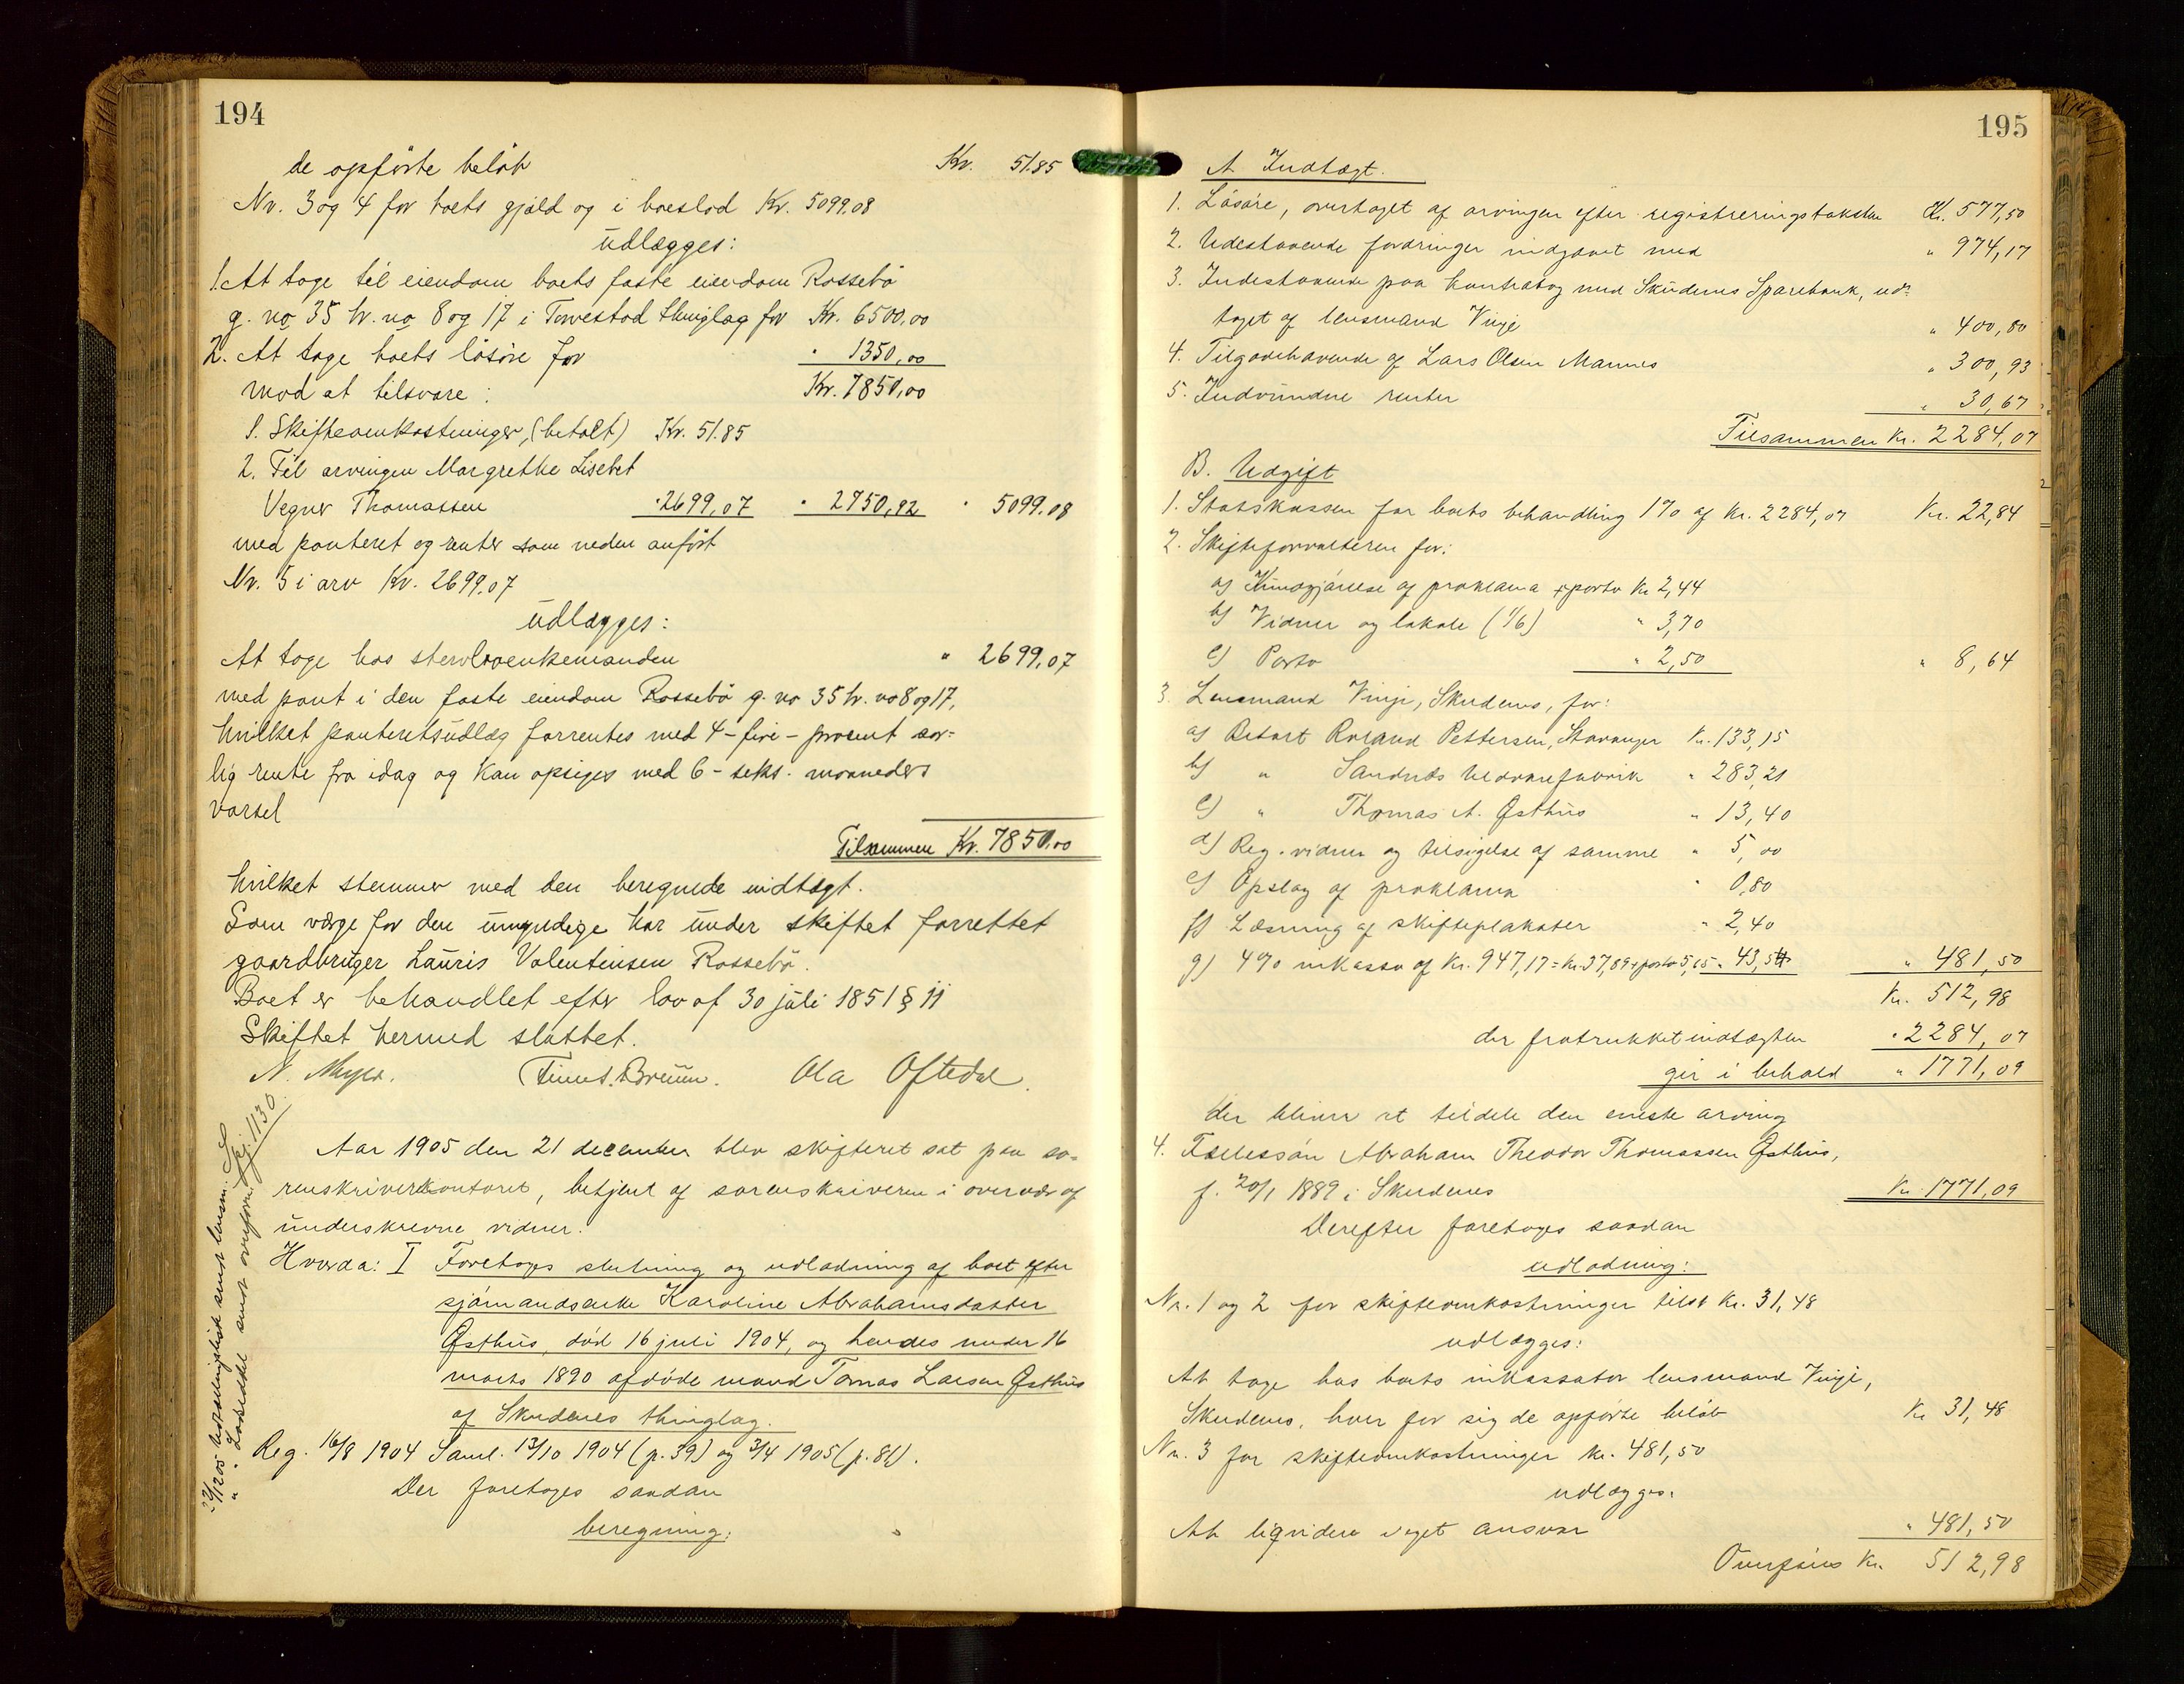 194
de opførte beløb Kr. 51.85
Nr. 3 og 4 for boets gjæld og i boeslod Kr. 5099.08
udlægges:
1. At tage til eiendom boets faste eiendom Rossebø
g. no 35 br. no 8 og 17 i Torvestad thinglag for Kr. 6500,00
2. At tage boets løsøre for " 1350,00
mod at tilsvare: Kr. 7850,00
1. Skifteomkostninger, (betalt) Kr. 51.85
2. Til arvingen Margrethe Lisebet
Vegner Thomassen " 2699,07 " 2750,92 " 5099.08
med panteret og renter som neden anført
Nr. 5 i arv Kr. 2699.07
udlægges:
At tage hos stervboenkemanden " 2699,07
med pant i den faste eiendom Rossebø g. no 35 br. no 8 og 17,
hvilket panteretsudlæg forrentes med 4 - fire - prosent aar=
lig rente fra idag og kan opsiges med 6 - seks - maaneders
varsel
Tilsammen Kr. 7850.00
hvilket stemmer med den beregnede indtægt.
Som værge for den umyndige har under skiftet forrettet
gaardbruger Lauris Valentinsen Rossebø.
Boet er behandlet efter lov af 30 juli 1851 § 11
Skiftet hermed sluttet.
N. Meyer. Finn S. Bruun. Ola Oftedal.
Aar 1905 den 21 december blev skifteret sat paa so=
renskriverkontoret, betjent af sorenskriveren i overvær af
underskrevne vidner.
Hvorda: I Foretoges slutning og udlodning af boet efter
sjømandsenke Karoline Abrahamsdatter
Østhus, død 16 juli 1904, og hendes under 16
marts 1890 afdøde mand Tomas Larsen Østhus
af Skudenes thinglag.
Reg. 16/8 1904 Saml. 13/10 1904 (p. 39) og 3/4 1905 (p. 81).
Der foretoges saadan
beregning:
195
A Indtægt.
1. Løsøre, overtaget af arvingen efter registreringstaksten Kr. 577,50
2. Udestaaende fordringer indgaaet med " 974,17
3. Indestaaende paa kontrabog med Skudenes Sparebank, ud=
taget af lensmand Vinje " 400,80
4. Tilgodehavende af Lars Olsen Mannes " 300,93
5. Indvundne renter " 30,67
Tilsammen Kr. 2284,07
B. Udgift
1. Statskassen for boets behandling 1% af Kr. 2284,07 Kr. 22,84
2. Skifteforvalteren for:
a) Kundgjørelse af proklama + porto Kr 2,44
b) Vidner og lokale (1/6) " 3,70
c) Porto " 2,50 " 8,64
3. Lensmand Vinje, Skudenes, for:
a) Betalt Roland Pettersen, Stavanger Kr. 133,15
b) " Sandnes Uldvarefabrik " 283,21
c) " Thomas A. Østhus " 13,40
d) Reg. vidner og tilsigelse af samme " 5,00
e) Opslag af proklama " 0,80
f) Læsning af skifteplakater " 2,40
g) 4% inkasso af Kr. 947,17 = Kr. 37,89 + porto 5,65 " 43,54 " 481,50
Kr. 512,98
der fratrukket indtægten " 2284,07
gir i behold " 1771,09
der bliver at tildele den eneste arving
4. Fællessøn Abraham Theodor Thomassen Østhus,
f. 20/1 1889 i Skudenes Kr. 1771,09
Derefter foretoges saadan
udlodning:
Nr. 1 og 2 for skifteomkostninger tils. Kr. 31,48
udlægges:
At tage hos boets inkassator lensmand Vinje,
Skudenes, hver for sig de opførte beløb Kr 31,48
Nr. 3 for skifteomkostninger Kr. 481,50
udlægges:
At liqvidere eget ansvar " 481,50
Overføres Kr. 512,98